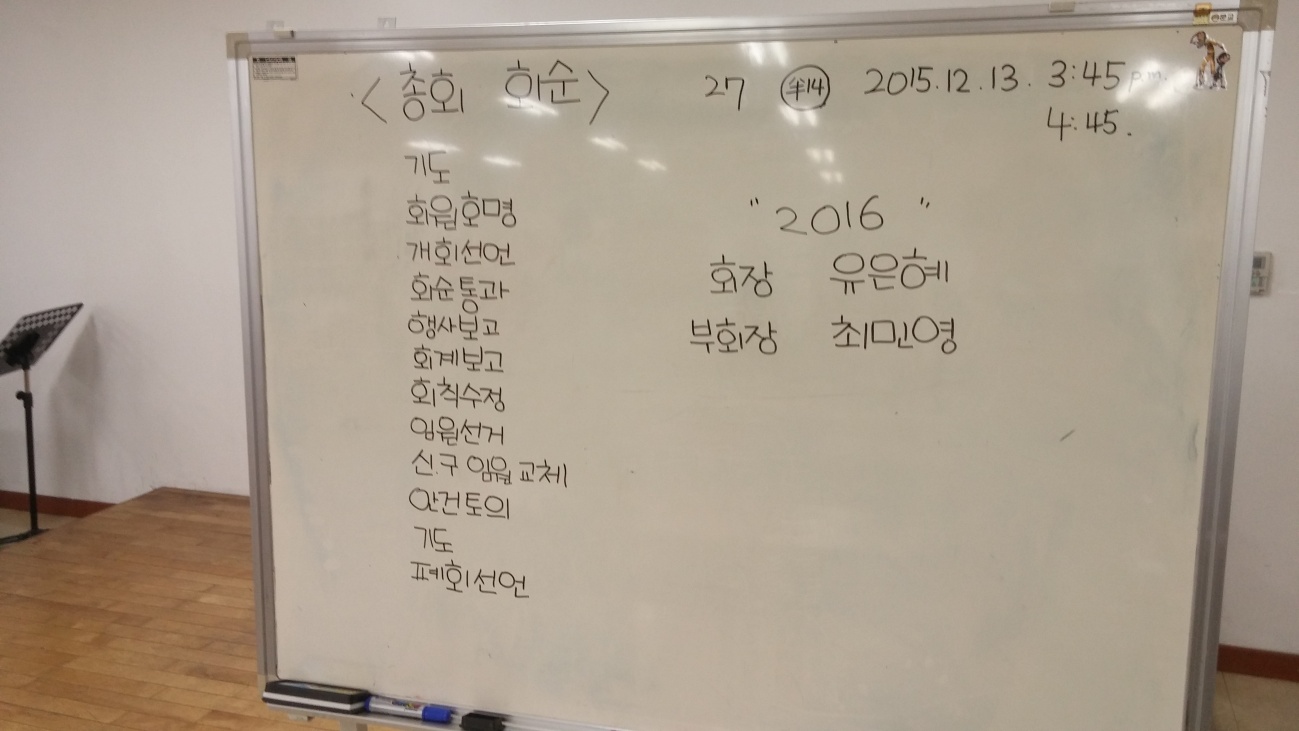 <총회 회순> 27 半14 2015.12.13. 3:45 p.m.
4:45.
기도
회원호명
개회선언
회순통과
행사보고
회계보고
회칙수정
임원선거
신.구 임원 교체
안건토의
기도
폐회선언
"2016"
회장 유은혜
부회장 최민영